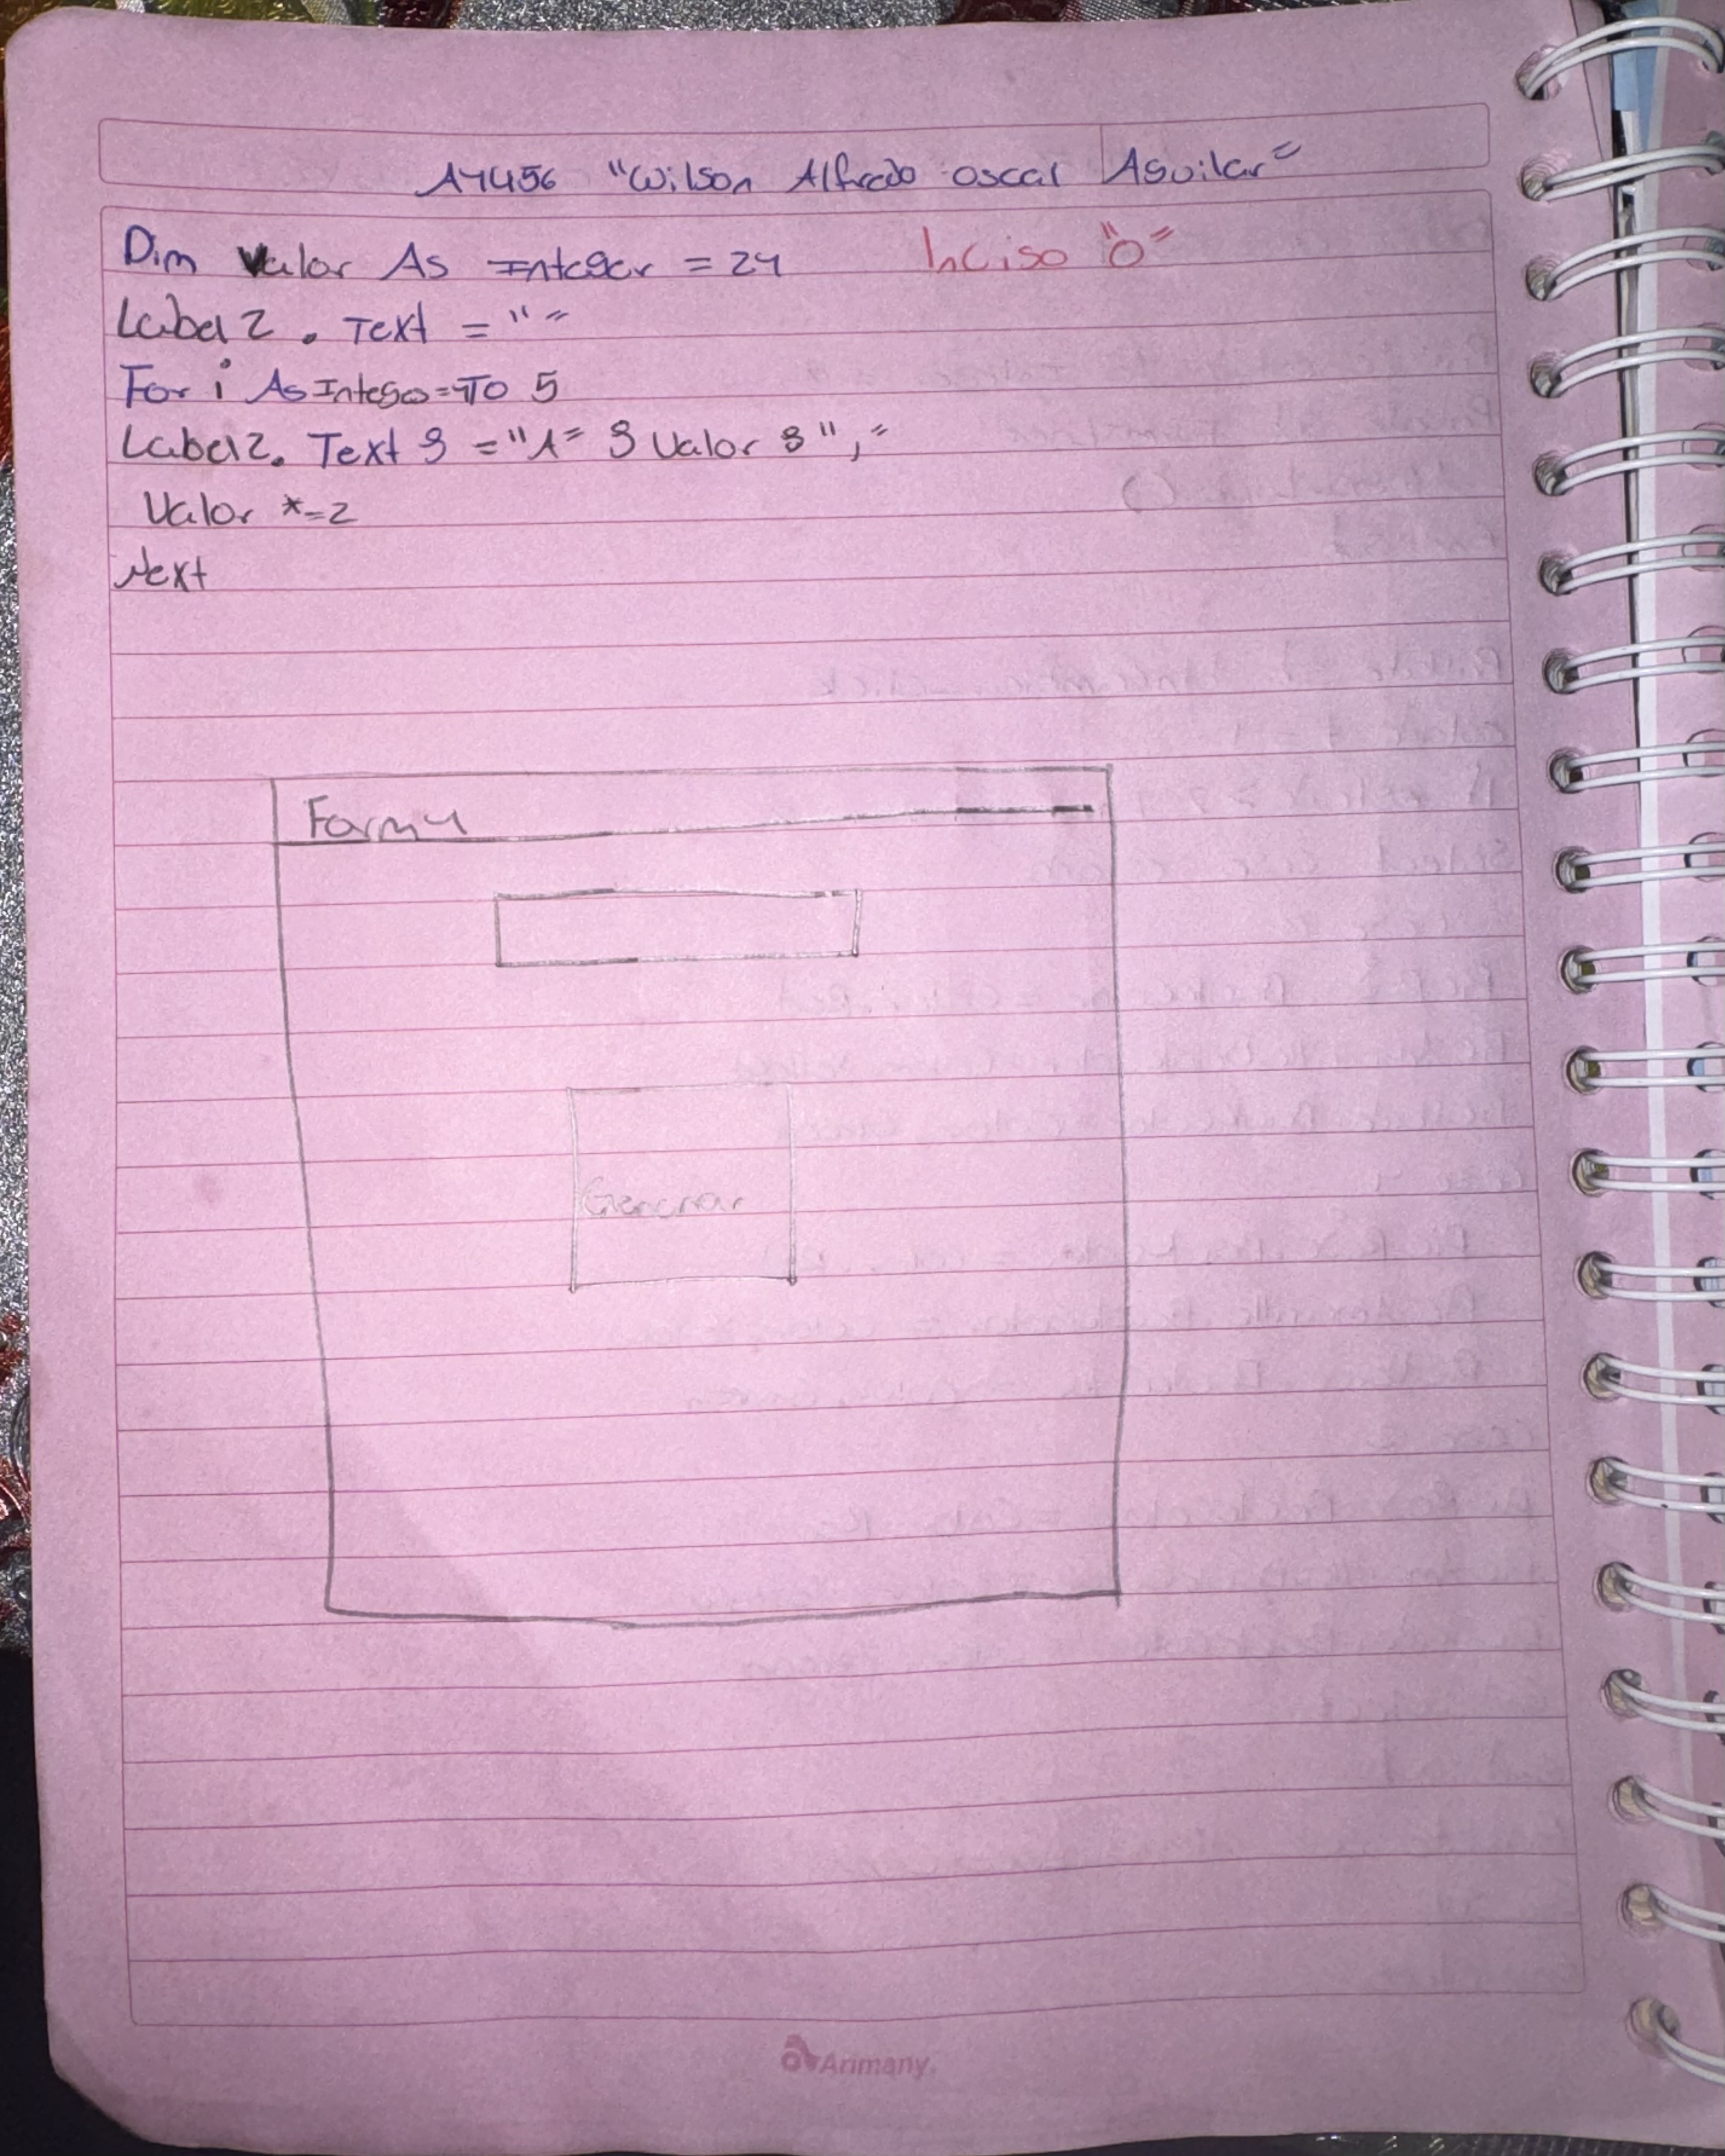 A4456 "Wilson Alfredo oscal Aguilar"
Dim Valor As Integer = 24 Inciso "O"
Label2. Text = " "
For i As Intego=1To 5
Label2. Text & ="1" & Valor & ", "
Valor *=2
Next
Form4
Generar
Arimany.